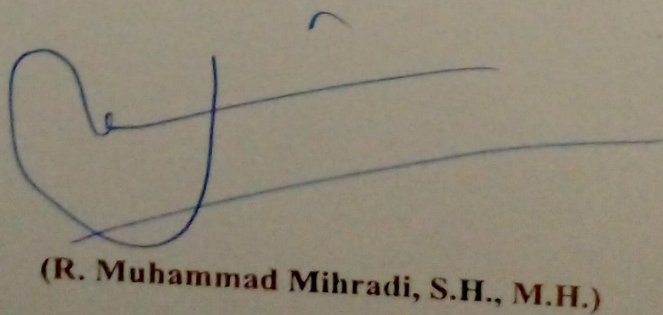 (R. Muhammad Mihradi, S.H., M.H.)